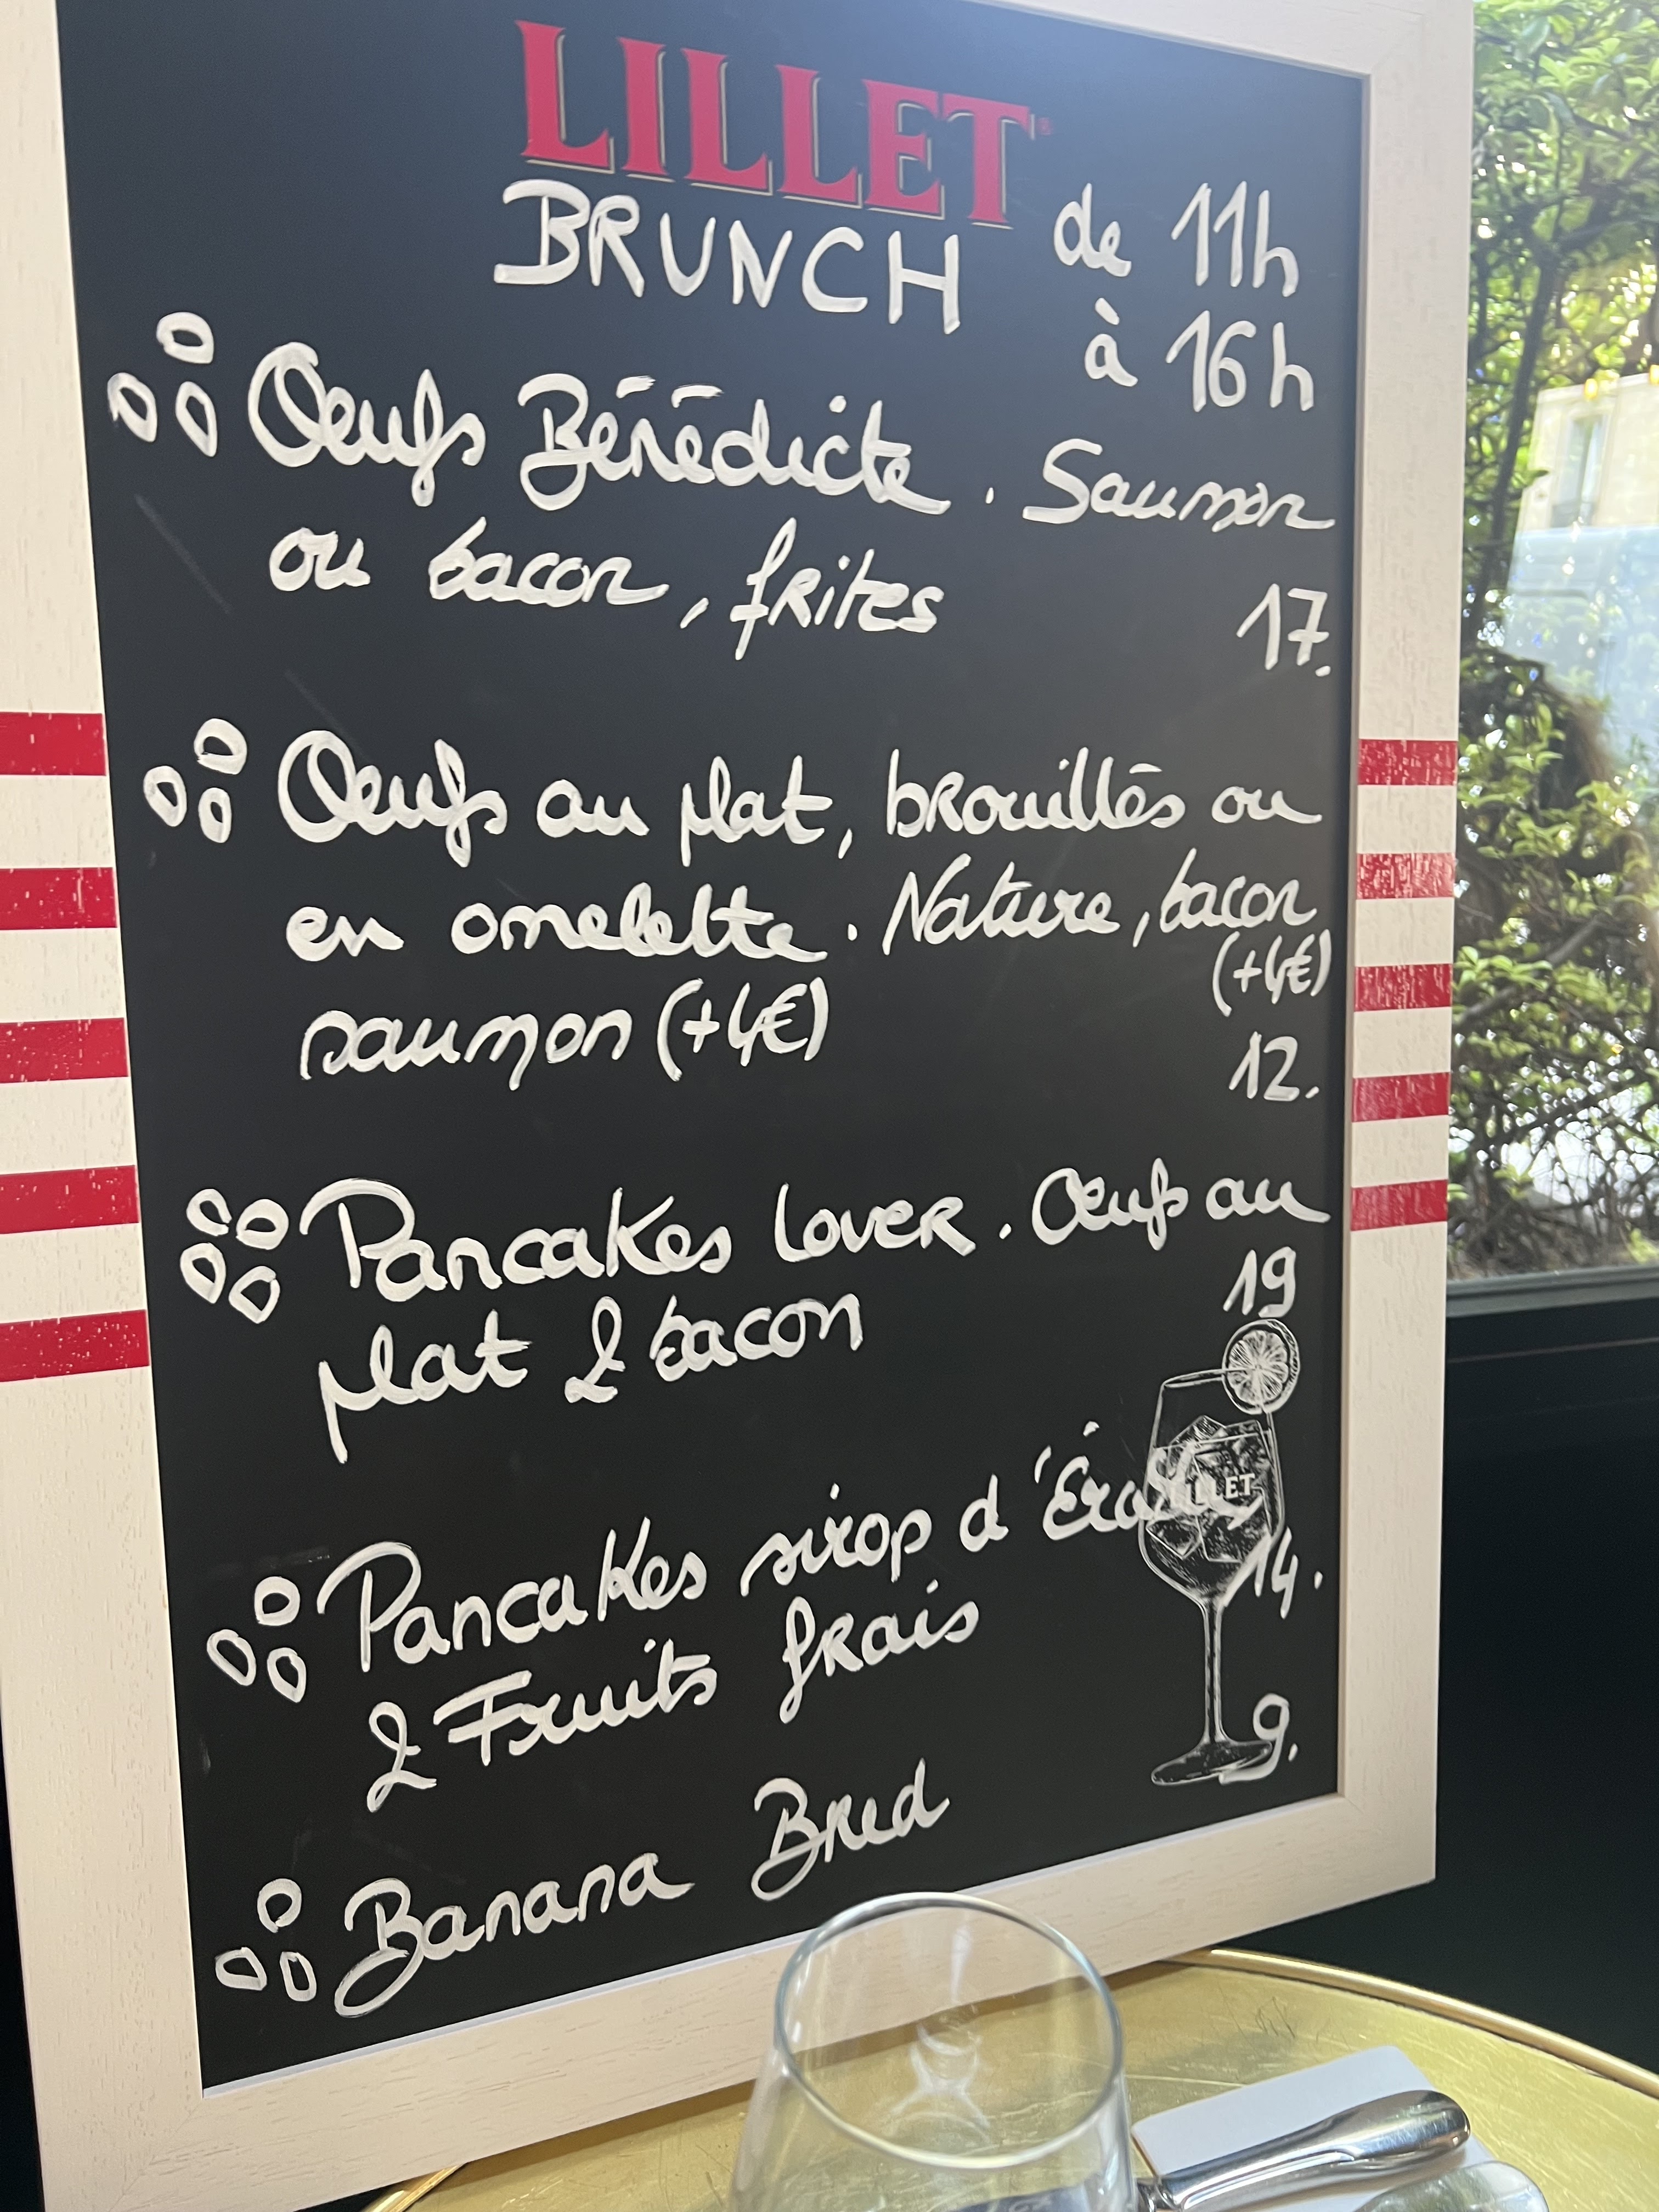 LILLET
BRUNCH de 11h
à 16h
Oeufs Bénédicte . Saumon
ou bacon, frites 17.
Oeufs au plat, brouillés ou
en omelette . Nature, bacon
(+4€)
saumon (+4€) 12.
Pancakes lover . Oeufs au
plat & bacon 19
Pancakes sirop d'Érable
& Fruits frais 14.
Banana Bred 9.
LILLET